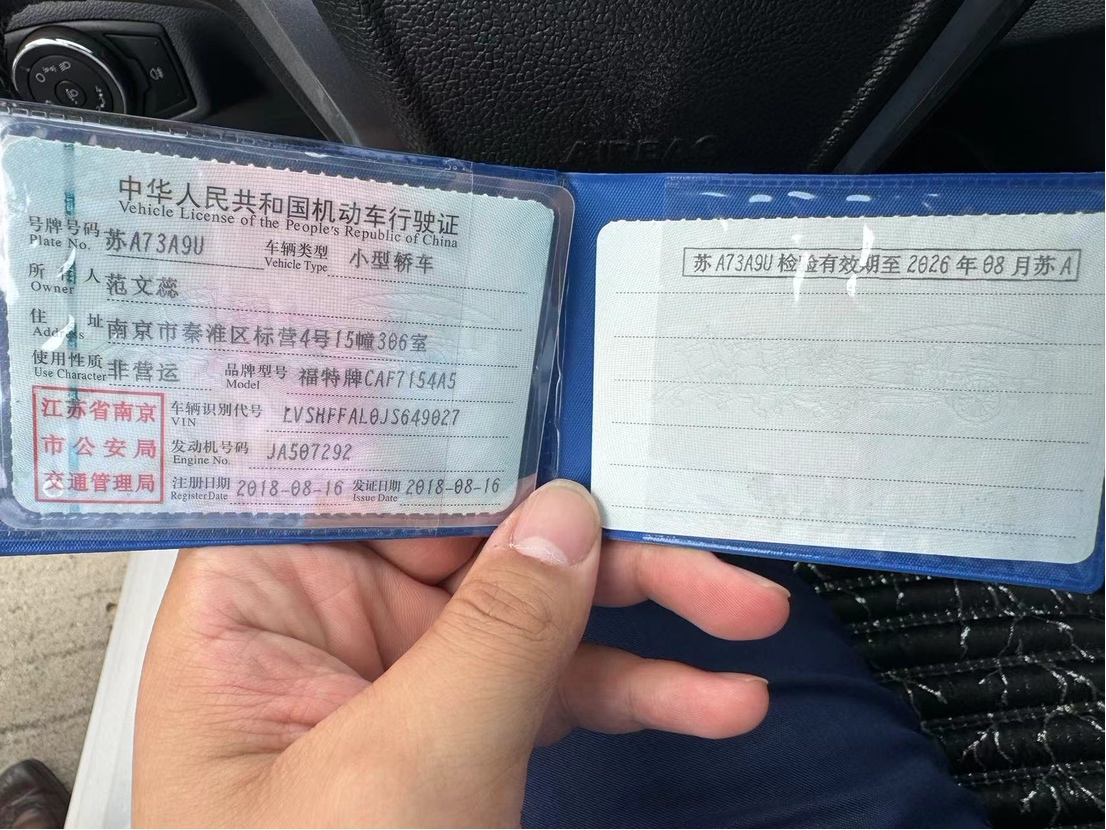 中华人民共和国机动车行驶证
Vehicle License of the People's Republic of China
号牌号码 苏A73A9U 车辆类型 小型轿车
Plate No. Vehicle Type
所有人 范文蕊
Owner
住址 南京市秦淮区标营4号15幢306室
Address
使用性质 非营运 品牌型号 福特牌CAF7154A5
Use Character Model
江苏省南京
市公安局
交通管理局
车辆识别代号 LVSHFFAL0JS649027
VIN
发动机号码 JA507292
Engine No.
注册日期 2018-08-16 发证日期 2018-08-16
Register Date Issue Date
苏A73A9U 检验有效期至 2026 年 08 月苏A
AIRBAG